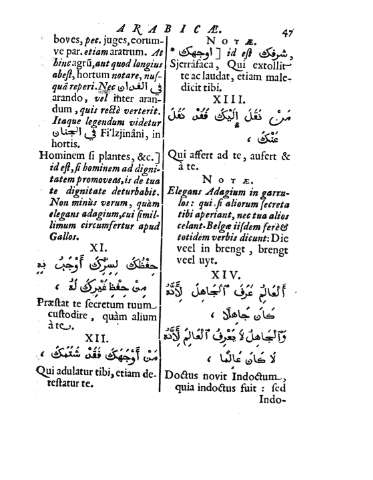 ARABICÆ. 47
boves, pec. juges, eorum-
ve par. etiam aratrum. At
hinc agrũ, aut quod longius
abest, hortum notare, nus-
quã reperi. Nec في الفدان
arando, vel inter aran-
dum, quis rectè verterit.
Itaque legendum videtur
في الجنان Fi'lzjináni, in
hortis.
Hominem si plantes, &c.]
id est, si hominem ad digni-
tatem promoveas, is de tua
te dignitate deturbabit.
Non minùs verum, quàm
elegans adagium, cui simil-
limum circumfertur apud
Gallos.
XI.
حفظك لسرك أوجب به
من حفظ غيرك له
Præstat te secretum tuum
custodire, quàm alium
à te.
XII.
من أوجهك فقد شتمك
Qui adulatur tibi, etiam de-
testatur te.
NOTÆ.
أوجهك] id est شرفك,
Sjerráfaca, Qui extollit
te ac laudat, etiam male-
dicit tibi.
XIII.
من نقل إليك فقد نقل
عنك
Qui affert ad te, aufert &
à te.
NOTÆ.
Elegans Adagium in garru-
los: qui si aliorum secreta
tibi aperiant, nec tua alios
celant. Belgæ iisdem ferè &
totidem verbis dicunt: Die
veel in brengt, brengt
veel uyt.
XIV.
ألعالم عرف ألجاهل لأنه
كان جاهلا
وألجاهل لا يعرف ألعالم لأنه
لا كان عالما
Doctus novit Indoctum,
quia indoctus fuit: sed
Indo-